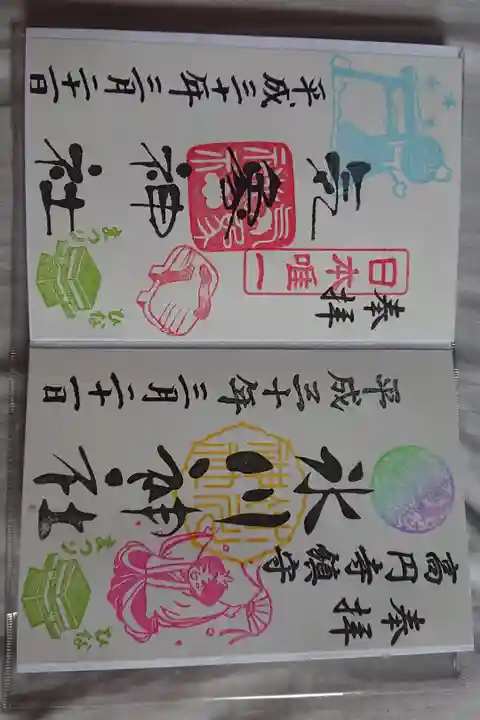 奉拝
日本唯一
気象神社
平成三十年三月二十一日
ひな
まつり
奉拝
高円寺鎮守
氷川神社
平成三十年三月二十一日
ひな
まつり